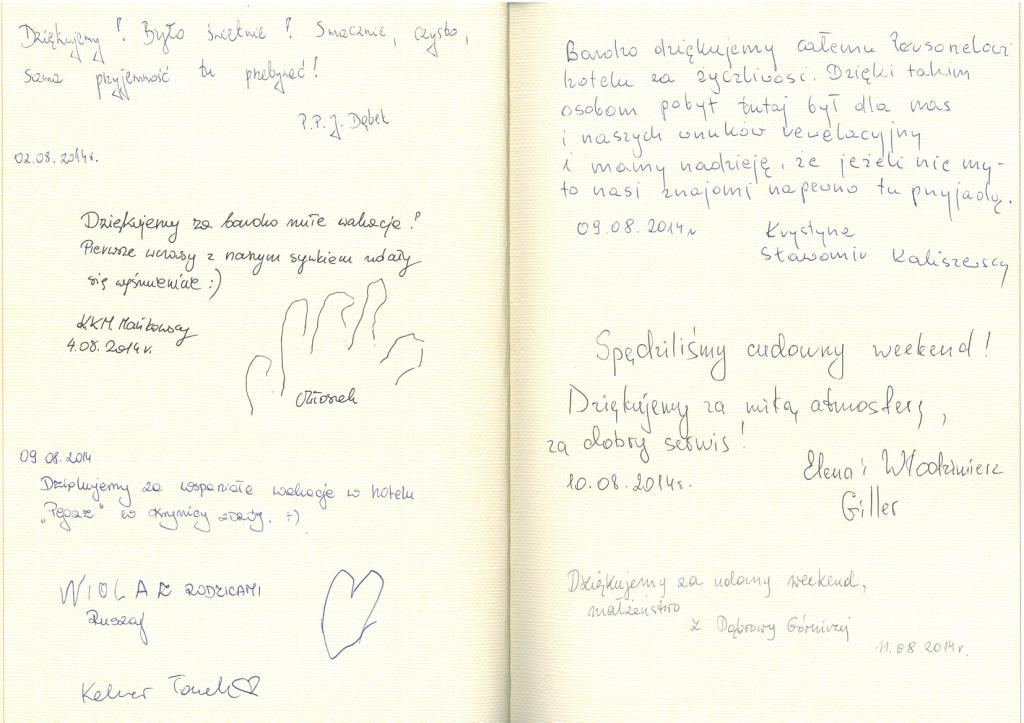 Dziękujemy! Było świetnie! Smacznie, czysto,
sama przyjemność tu przebywać!
P.P. J. Dąbek
02.08.2014r.
Dziękujemy za bardzo miłe wakacje!
Pierwsze wczasy z naszym synkiem udały
się wyśmienicie :)
KKM Mańkowscy
4.08.2014r.
09 08.2014
Dziękujemy za wspaniałe wakacje w hotelu
"Pegaz" w Krynicy Zdrój. :-)
WIOLA Z RODZICAMI
Kelner Tomek
Bardzo dziękujemy całemu Personelowi
hotelu za życzliwość. Dzięki takim
osobom pobyt tutaj był dla nas
i naszych wnuków rewelacyjny
i mamy nadzieję, że jeżeli nie my-
to nasi znajomi napewno tu przyjadą.
09.08.2014r
Krystyna
Sławomir Kaliszewscy
Spędziliśmy cudowny weekend!
Dziękujemy za miłą atmosferę,
za dobry serwis!
10.08.2014r.
Elena i Włodzimierz
Giller
Dziękujemy za udany weekend,
małżeństwo
z Dąbrowy Górniczej
11.08.2014r.